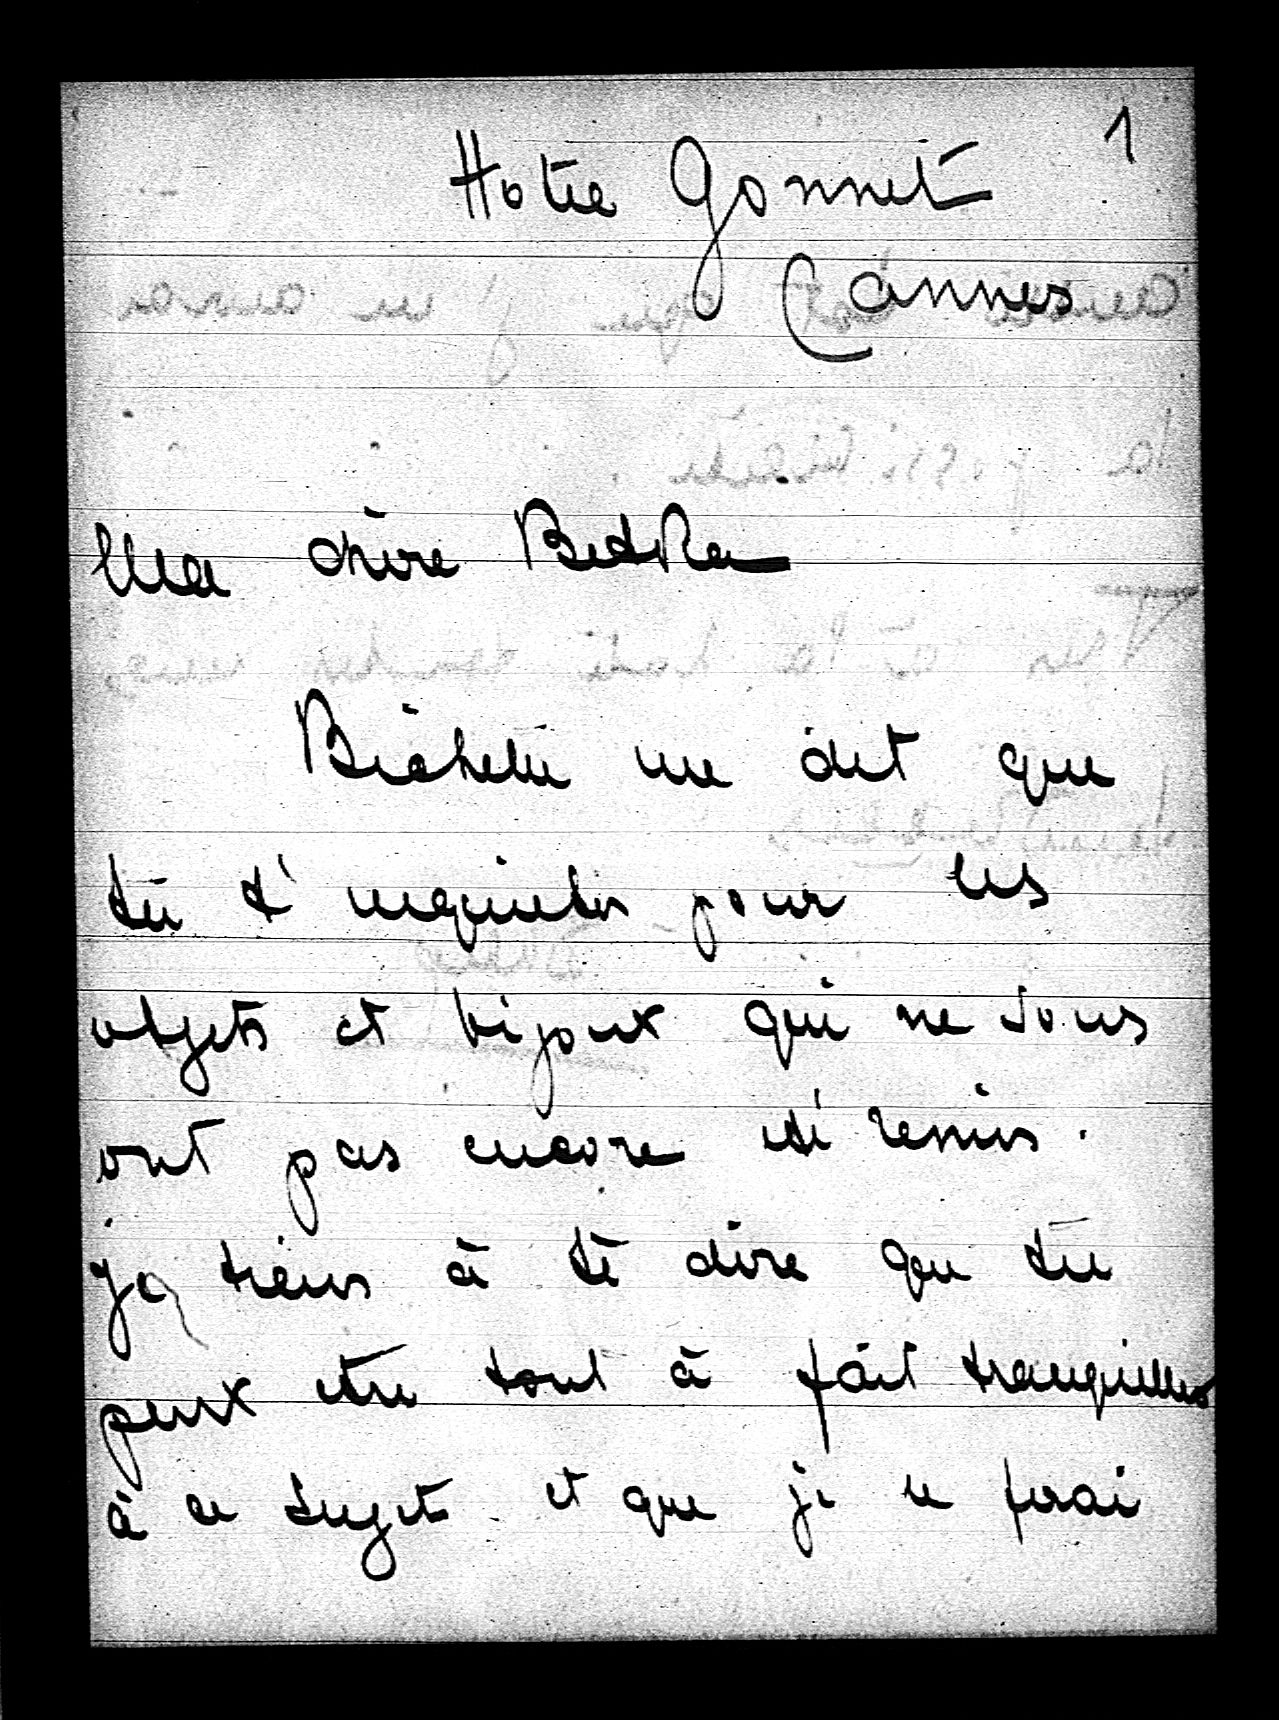 1
Hotel Gonnet
Cannes
Ma chère Bedka
Bichette me dit que
tu t'inquietes pour les
objets et bijoux qui ne vous
ont pas encore été remis.
je tiens à te dire que tu
peux être tout à fait tranquilles
à ce sujet et que je le ferai